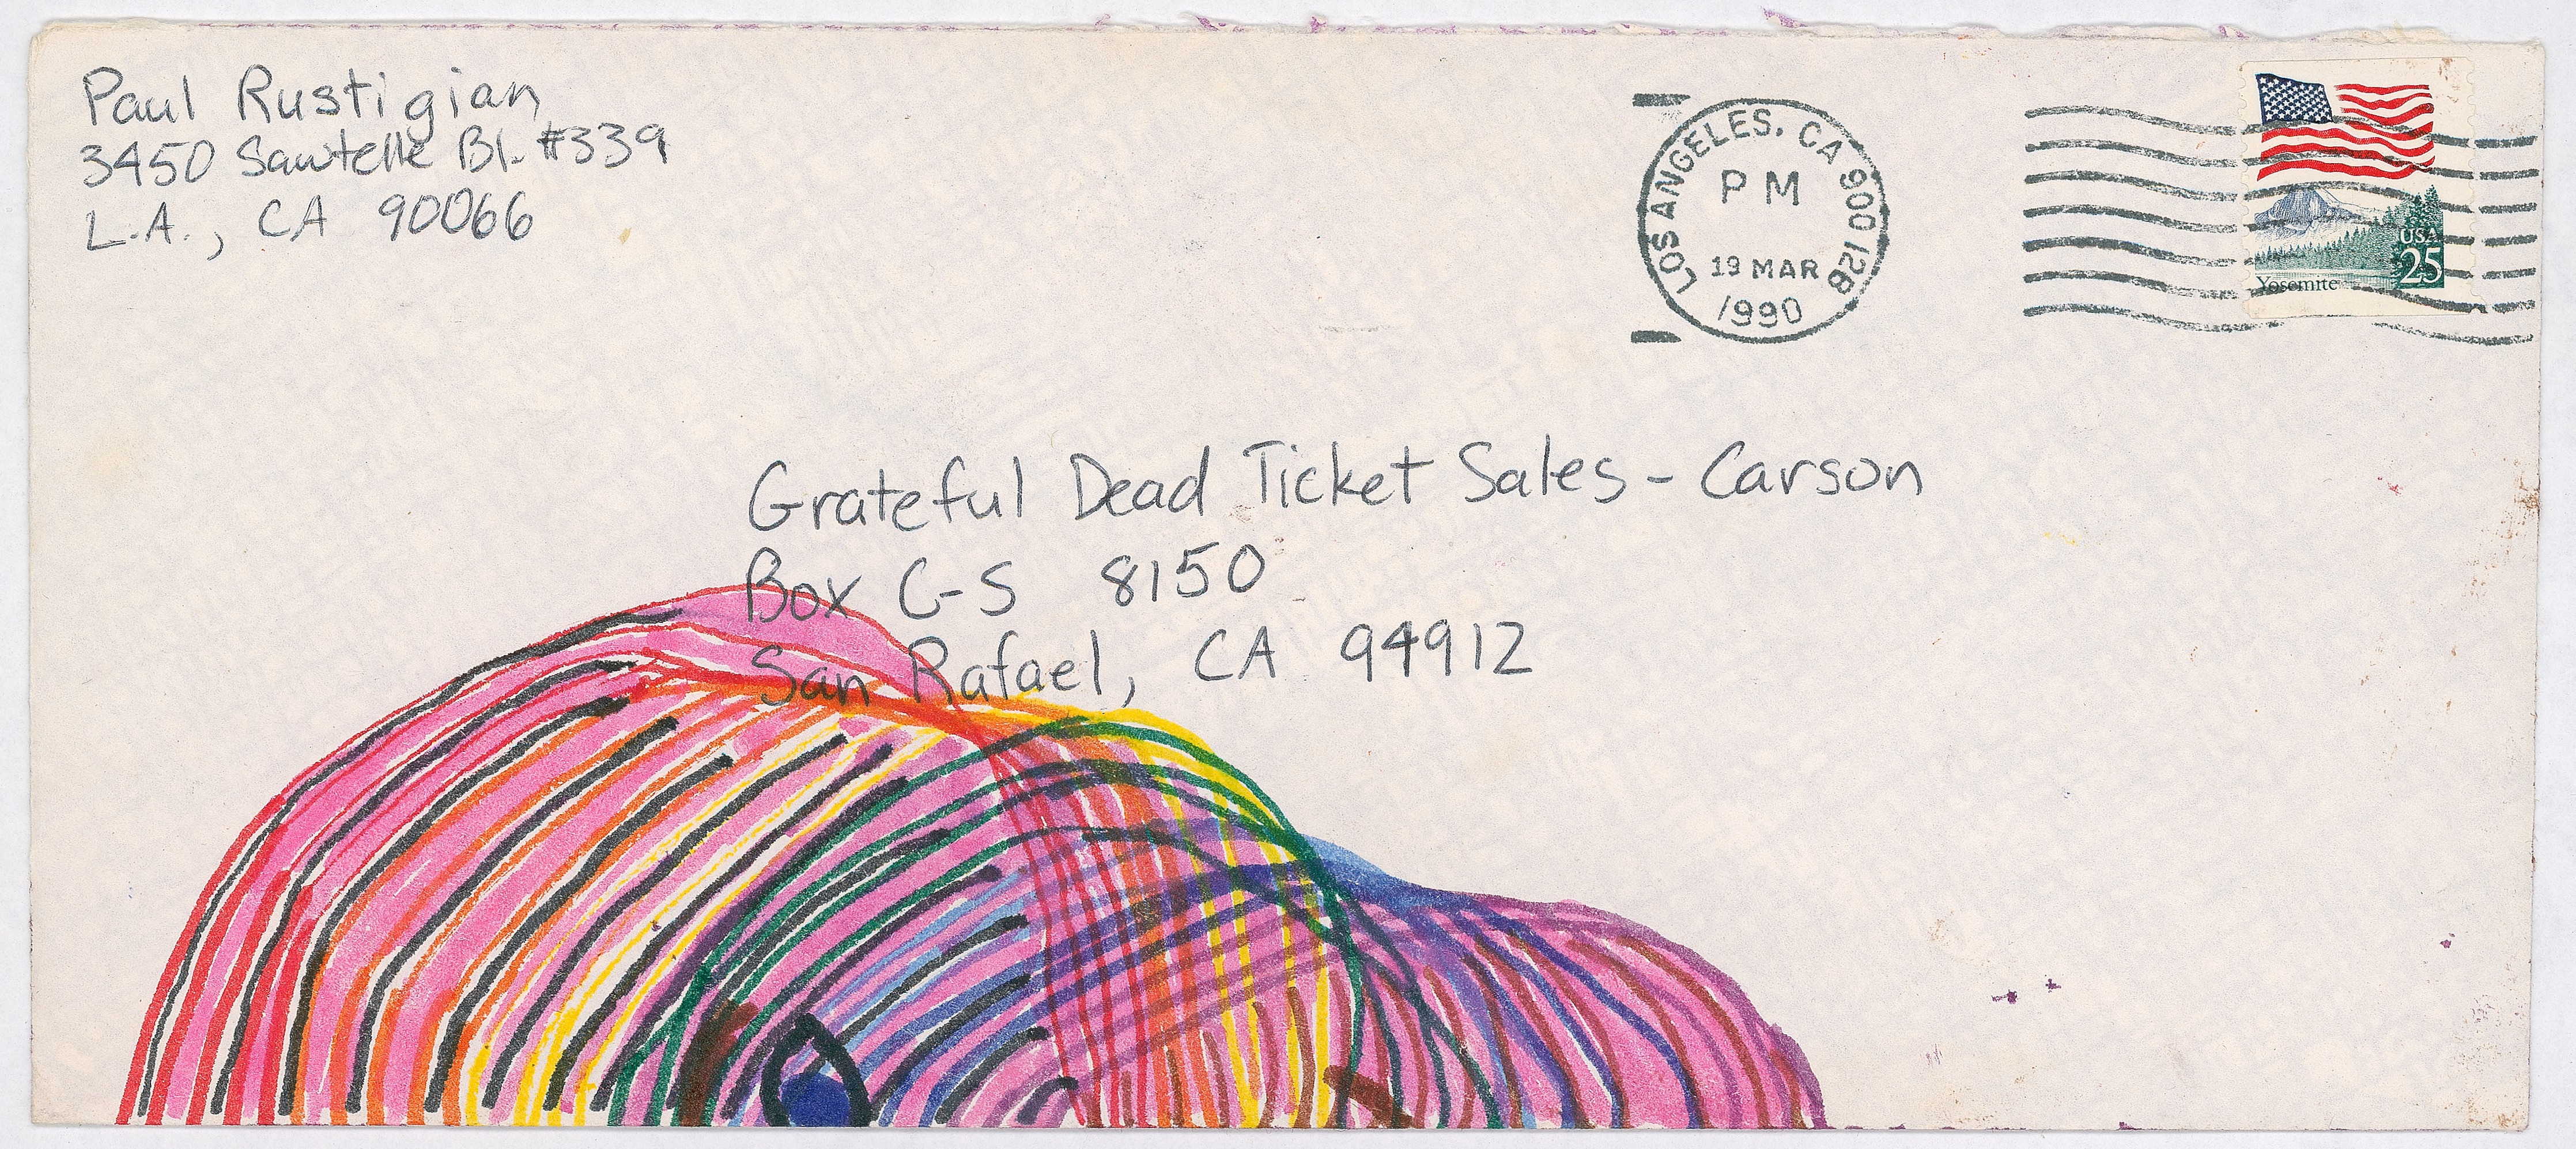 Paul Rustigian
3450 Sawtelle Bl. #339
L.A., CA 90066
LOS ANGELES, CA 900 12B
PM
19 MAR
1990
USA
25
Yosemite
Grateful Dead Ticket Sales - Carson
Box C-S 8150
San Rafael, CA 94912